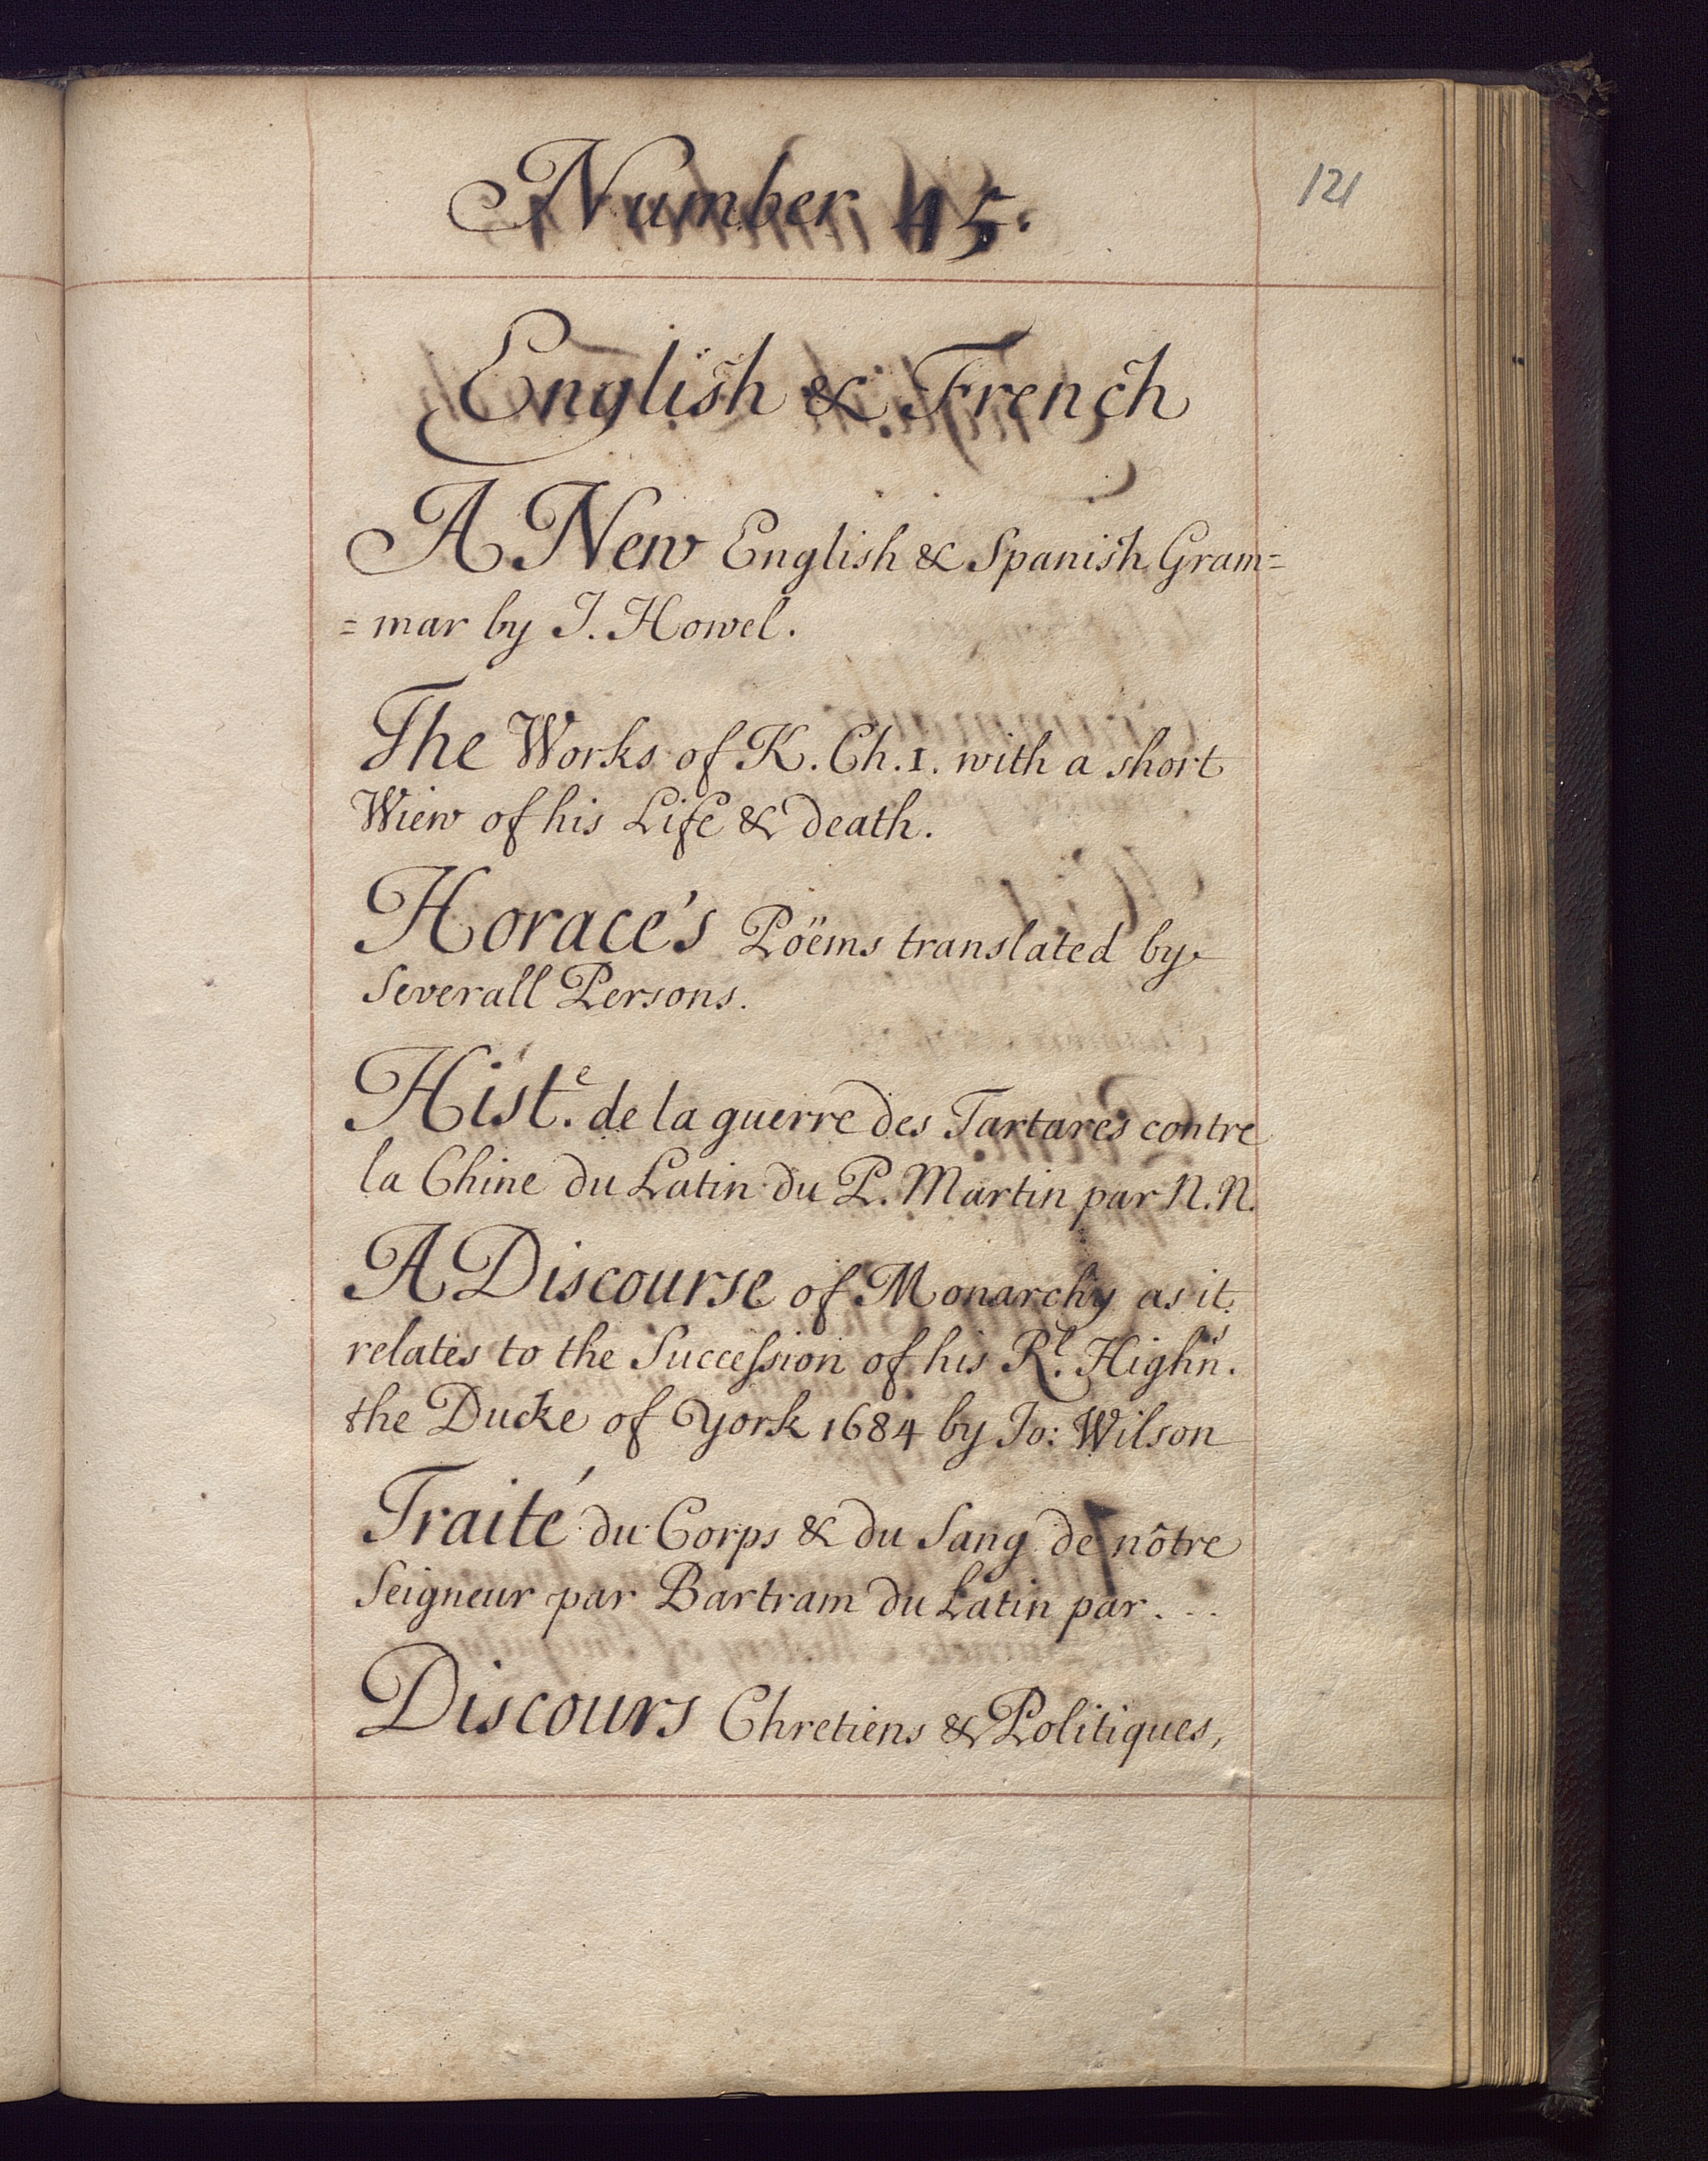 Number 45.
121
English & French
A New English & Spanish Gram=
=mar by J. Howel.
The Works of K. Ch. 1. with a short
Wiew of his Life & death.
Horace's Pöems translated by
Severall Persons.
Hist.e de la guerre des Tartares contre
la Chine du Latin du P. Martin par N.N.
A Discourse of Monarchy as it
relates to the Succession of his R.l Highn.s
the Ducke of York 1684 by Jo: Wilson
Traité du Corps & du Sang de nôtre
Seigneur par Bartram du Latin par...
Discours Chretiens & Politiques,